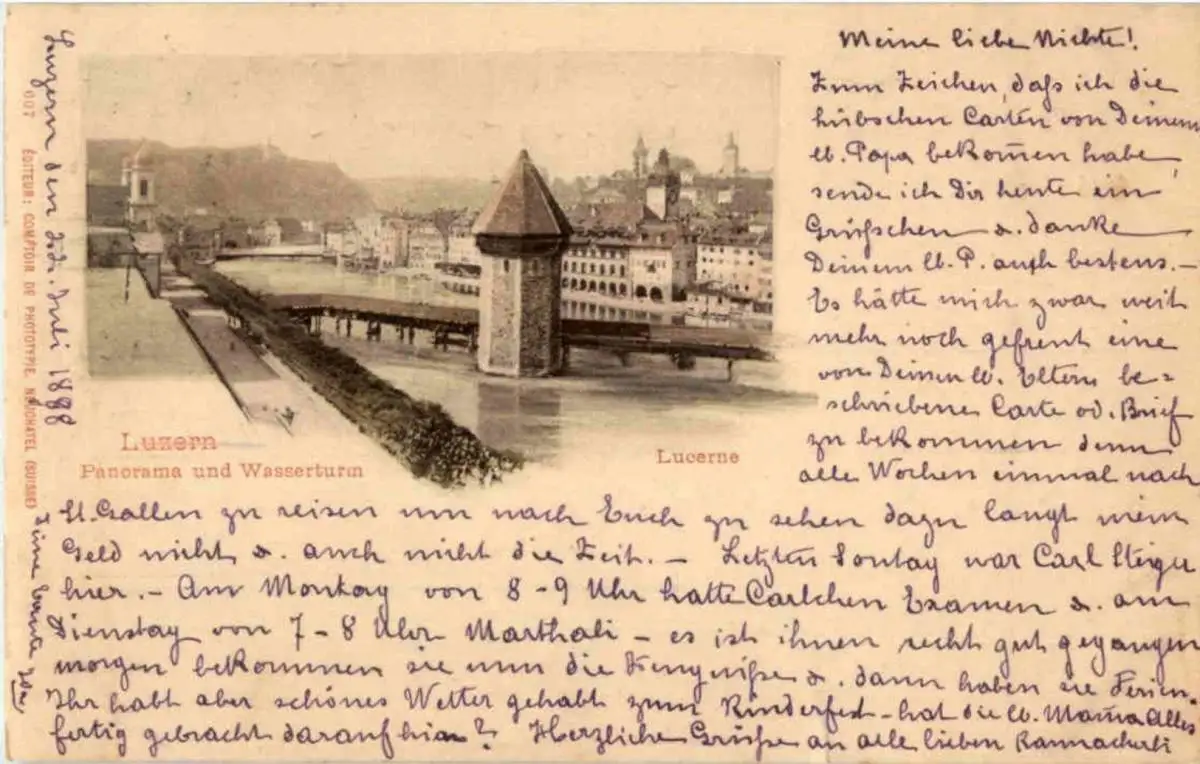 Luzern den Juli 1898
007 ÉDITEUR: COMPTOIR DE PHOTOTYPIE, NEUCHATEL (SUISSE)
Luzern
Panorama und Wasserturm
Lucerne
Meine liebe Nichte!
Zum Zeichen, daß ich die
hübschen Carten von Deinem
lb. Papa bekom̄en habe,
sende ich Dir heute ein
Grüsschen & danke
Deinem lb. P. auch bestens. –
Es hätte mich zwar weit
mehr noch gefreut eine
von Deinen lb. Eltern be=
schriebene Carte od. Brief
zu bekommen denn
alle Wochen einmal nach
St. Gallen zu reisen um nach Euch zu sehen dazu langt mein
Geld nicht & auch nicht die Zeit. – Letzten Sontag war Carl Steiger
hier. – Am Montag von 8–9 Uhr hatte Carlchen Examen & am
Dienstag von 7–8 Uhr Marthali – es ist ihnen recht gut gegangen
morgen bekommen sie nun die Zeugniße & dann haben sie Ferien.
Ihr habt aber schönes Wetter gehabt zum Kinderfest – hat die lb. Mam̄a Alles
fertig gebracht daraufhin? Herzliche Grüsse an alle lieben
Deine Tante Ida